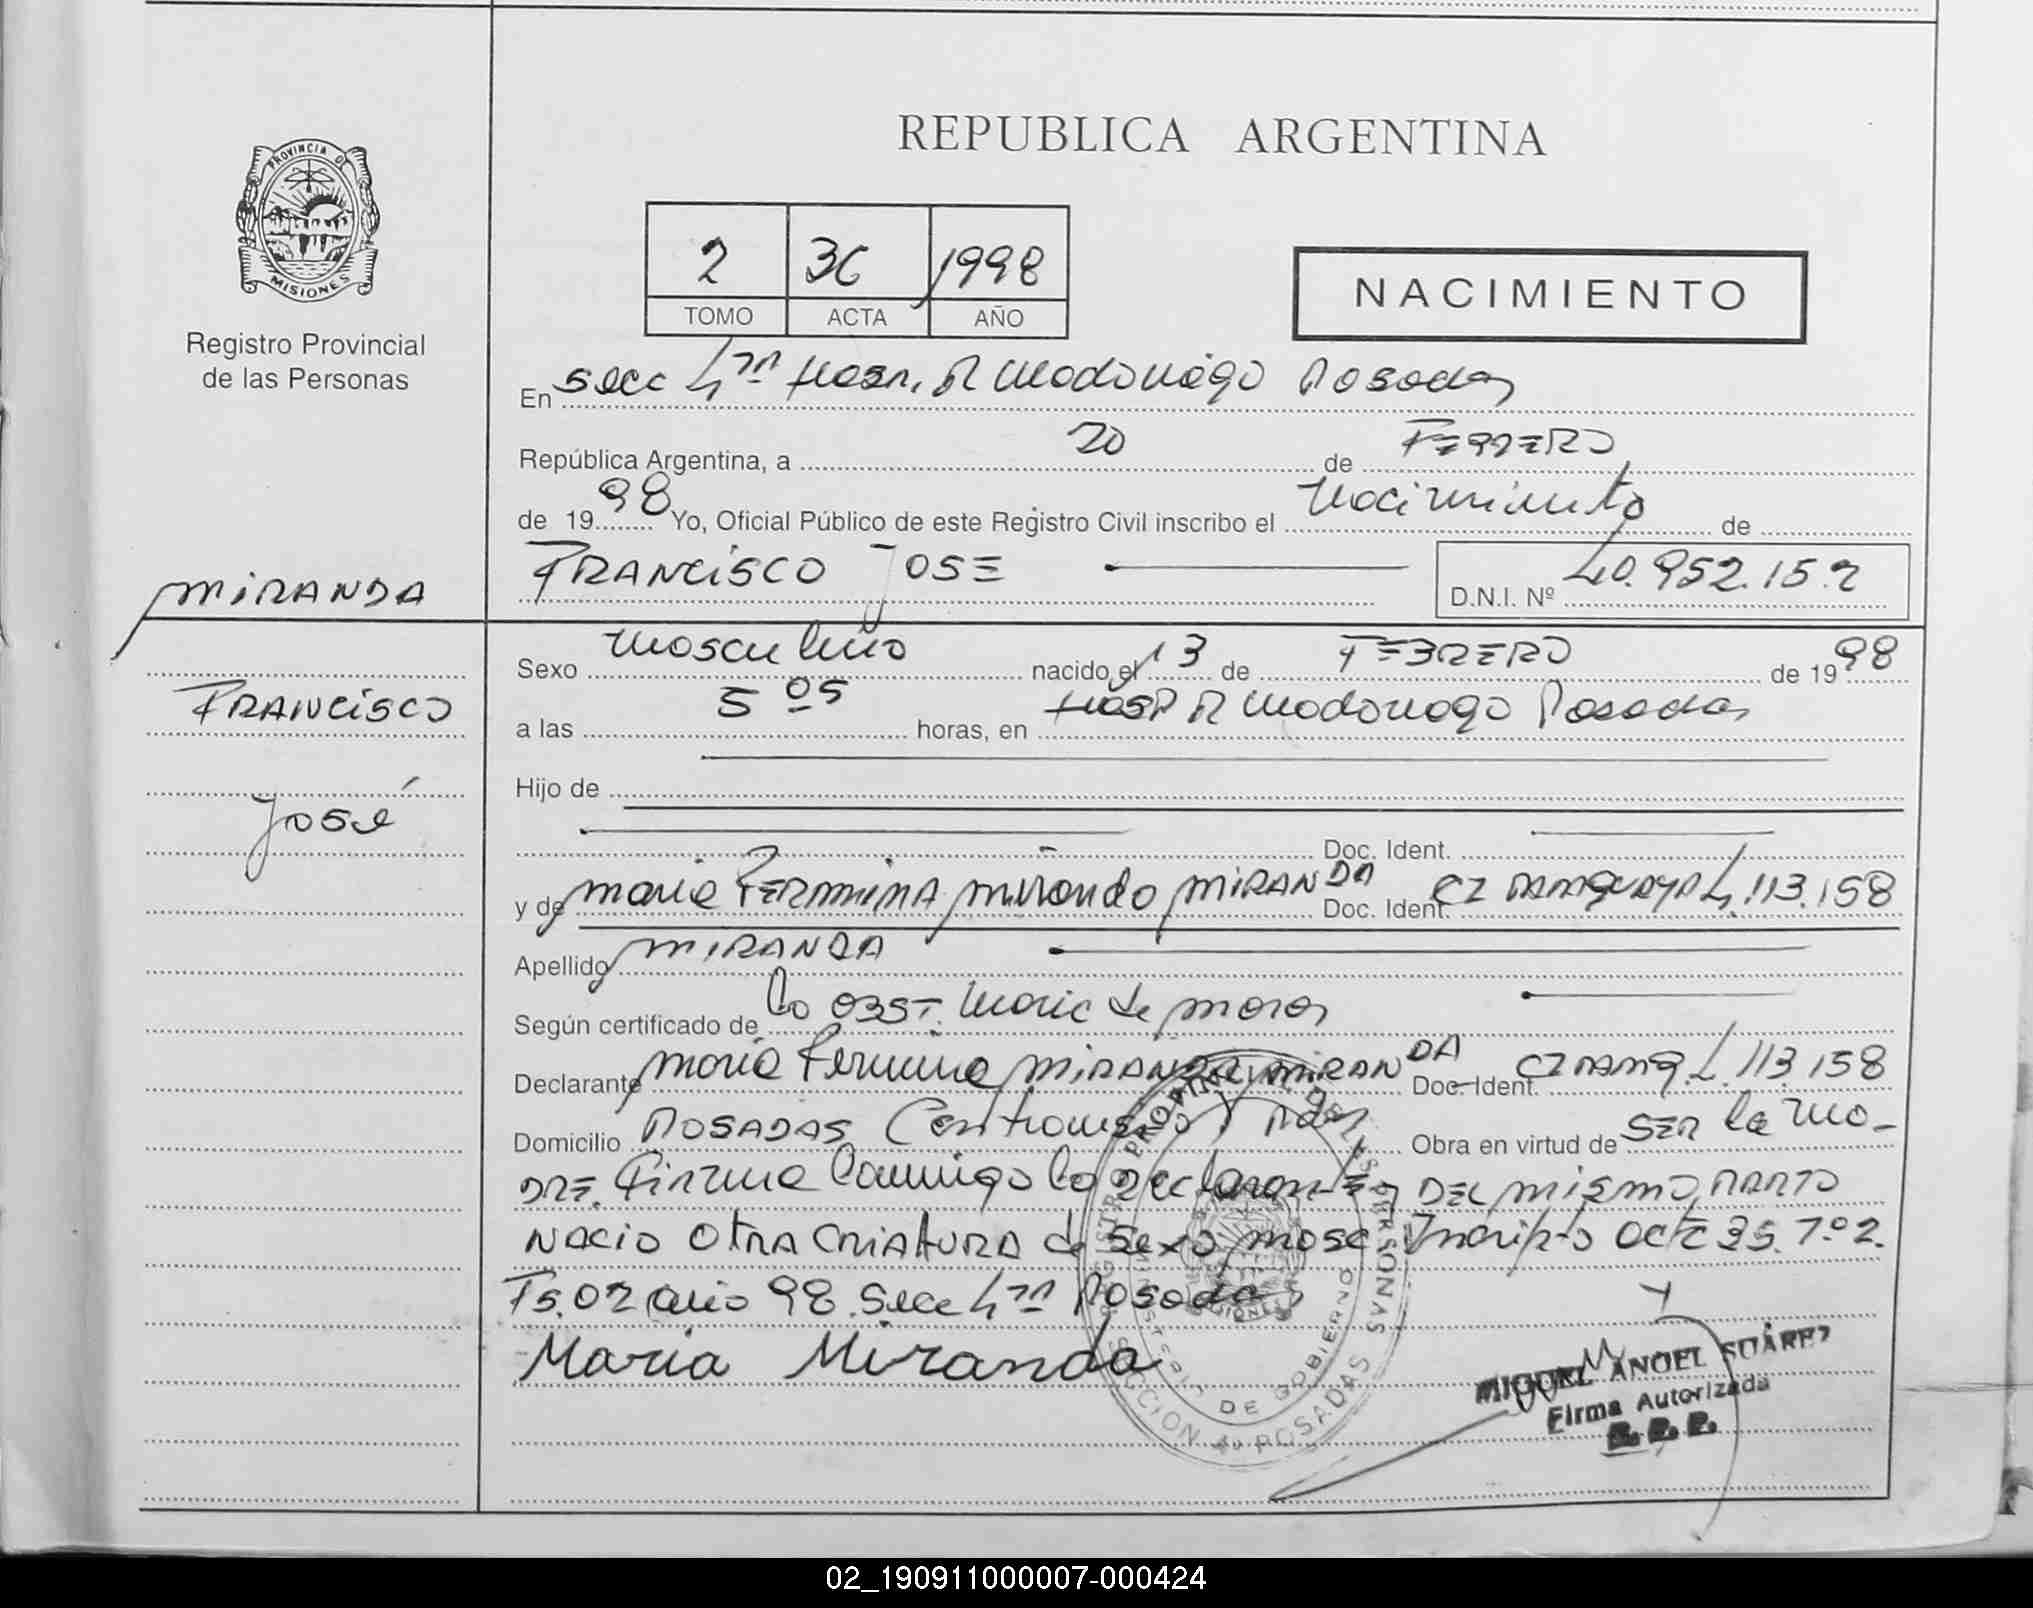 REPUBLICA ARGENTINA
PROVINCIA DE
MISIONES
Registro Provincial
de las Personas
2 36 1998
TOMO ACTA AÑO
NACIMIENTO
En Secc 4ta Hosp. R Madariaga Posadas
República Argentina, a 20 de FEBRERO
de 1998 Yo, Oficial Público de este Registro Civil inscribo el Nacimiento de
MIRANDA
FRANCISCO JOSE
D.N.I. Nº 40.952.152
Sexo Masculino nacido el 13 de FEBRERO de 1998
FRANCISCO
a las 5 05 horas, en Hosp R Madariaga Posadas
Hijo de
José
Doc. Ident.
y de Maria FERMINA Miranda MIRANDA Doc. Ident. CI PARAGUAYA 4.113.158
Apellido MIRANDA
Según certificado de La OBST. Maria de
Declarante Maria Fermina MIRANDA MIRANDA Doc. Ident. CI PARAG. 4.113.158
Domicilio POSADAS Obra en virtud de SER la MA-
DRE. Firma Conmigo la Declarante, DEL MISMO PARTO
NACIO OTRA CRIATURA de Sexo Masc Inscripto Acta 35. Tº 2.
Fs. 02 año 98 Secc 4ta Posadas
Maria Miranda
REGISTRO PROVINCIAL DE LAS PERSONAS
MINISTERIO DE GOBIERNO
SECCION 4a POSADAS
MIGUEL ANGEL SUAREZ
Firma Autorizada
R. P. P.
02_190911000007-000424